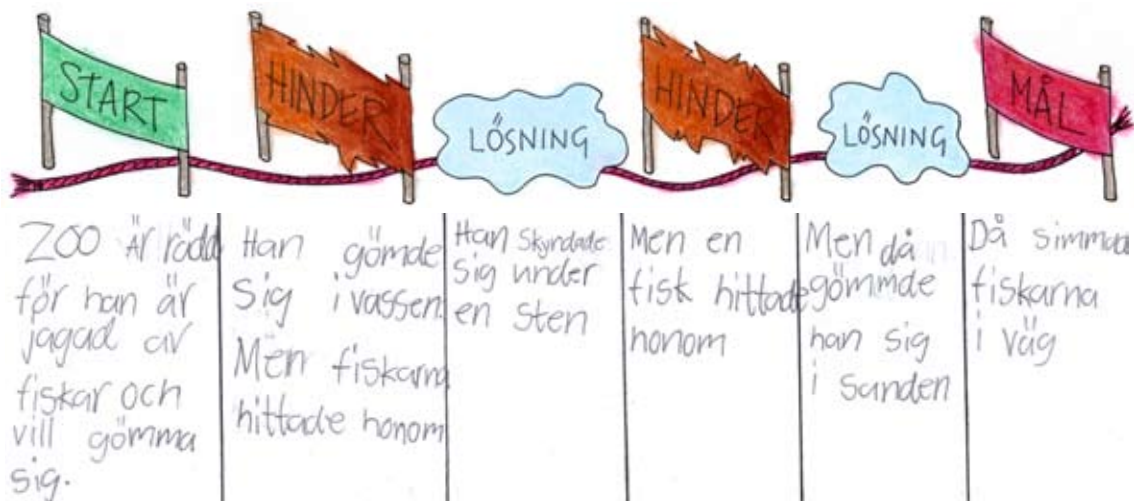 START
HINDER
LÖSNING
HINDER
LÖSNING
MÅL
ZOO Är rädd
för han är
jagad av
fiskar och
vill gömma
sig.
Han gömde
Sig i vassen.
Men fiskarna
hittade honom
Han Skyndade
sig under
en Sten
Men en
fisk hittade
honom
Men då
gömmde
han sig
i Sanden
Då simmade
fiskarna
i väg